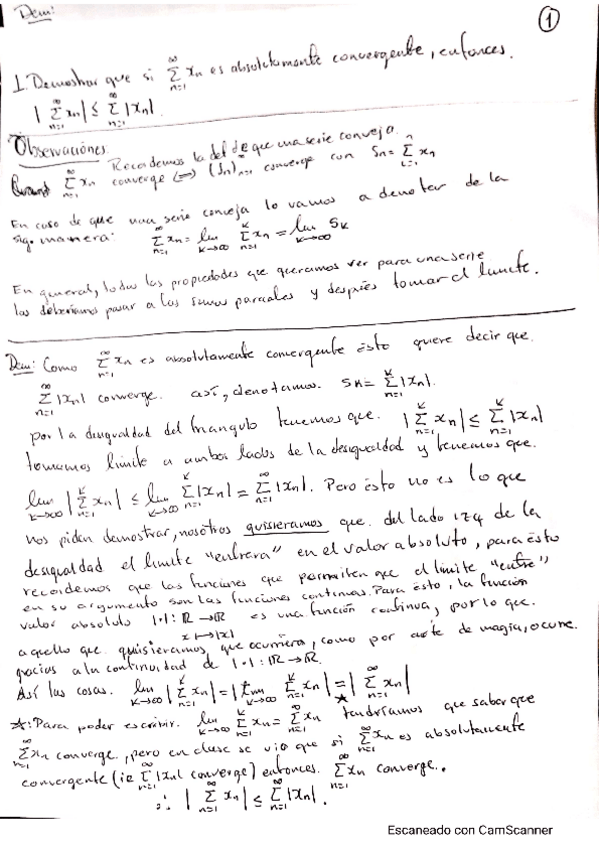 Dem:
1
1. Demostrar que si $\sum_{n=1}^{\infty} x_n$ es absolutamente convergente, entonces.
$|\sum_{n=1}^{\infty} x_n| \leq \sum_{n=1}^{\infty} |x_n|$.
Observaciones.
Recordemos la def de que una serie converja.
$\sum_{n=1}^{\infty} x_n$ converge $\Longleftrightarrow (S_n)_{n=1}^{\infty}$ converge con $S_n = \sum_{i=1}^{n} x_n$
En caso de que una serie converja lo vamos a denotar de la
sig. manera: $\sum_{n=1}^{\infty} x_n = \lim_{k\to\infty} \sum_{n=1}^{k} x_n = \lim_{k\to\infty} S_k$
En general, todas las propiedades que queramos ver para una serie
las deberíamos pasar a las sumas parciales y después tomar el limite.
Dem: Como $\sum_{n=1}^{\infty} x_n$ es absolutamente convergente ésto quiere decir que
$\sum_{n=1}^{\infty} |x_n|$ converge. así, denotamos. $S_k = \sum_{n=1}^{k} |x_n|$.
por la desigualdad del triangulo tenemos que. $|\sum_{n=1}^{k} x_n| \leq \sum_{n=1}^{k} |x_n|$
tomamos limite a ambos lados de la desigualdad y tenemos que.
$\lim_{k\to\infty} |\sum_{n=1}^{k} x_n| \leq \lim_{k\to\infty} \sum_{n=1}^{k} |x_n| = \sum_{n=1}^{\infty} |x_n|$. Pero ésto no es lo que
nos piden demostrar, nosotros quisieramos que del lado izq de la
desigualdad el limite "entrara" en el valor absoluto, para ésto
recordemos que las funciones que permiten que el límite "entre"
en su argumento son las funciones continuas. Para ésto, la función
valor absoluto $|\cdot|: \mathbb{R} \to \mathbb{R}$ es una función continua, por lo que.
$x \mapsto |x|$
aquello que quisieramos que ocurriera, como por arte de magia, ocurre.
gracias a la continuidad de $|\cdot|: \mathbb{R} \to \mathbb{R}$.
Así las cosas. $\lim_{k\to\infty} |\sum_{n=1}^{k} x_n| = |\lim_{k\to\infty} \sum_{n=1}^{k} x_n| \underset{★}{=} |\sum_{n=1}^{\infty} x_n|$
★: Para poder escribir. $\lim_{k\to\infty} \sum_{n=1}^{k} x_n = \sum_{n=1}^{\infty} x_n$ tendríamos que saber que
$\sum_{n=1}^{\infty} x_n$ converge, pero en clase se vio que si $\sum_{n=1}^{\infty} x_n$ es absolutamente
convergente (i.e. $\sum_{n=1}^{\infty} |x_n|$ converge) entonces. $\sum_{n=1}^{\infty} x_n$ converge.
$\therefore |\sum_{n=1}^{\infty} x_n| \leq \sum_{n=1}^{\infty} |x_n|$.
Escaneado con CamScanner